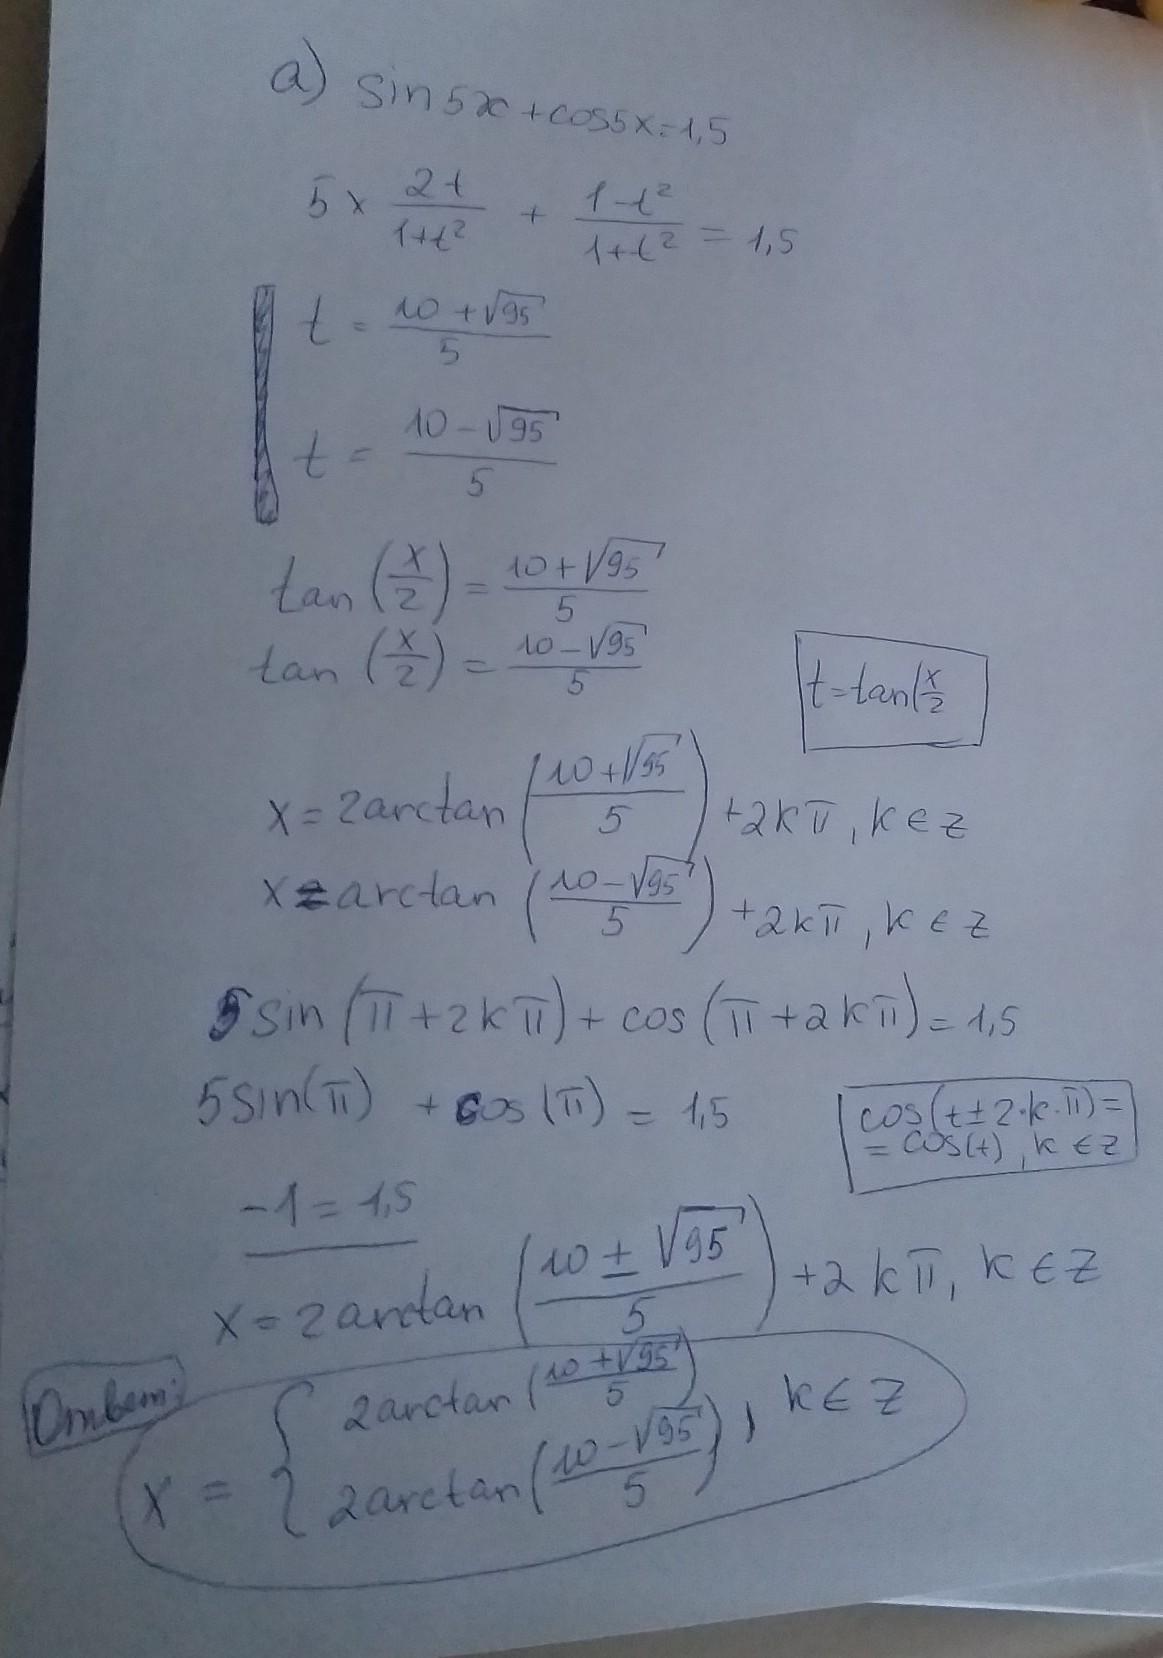 a) sin5x+cos5x=1,5
5 × 2t/(1+t²) + (1-t²)/(1+t²) = 1,5
t = (10+√95)/5
t = (10-√95)/5
tan(x/2) = (10+√95)/5
tan(x/2) = (10-√95)/5
t=tan(x/2
x=2arctan((10+√95)/5)+2kπ, k∈z
x=arctan((10-√95)/5)+2kπ, k∈z
5sin(π+2kπ)+cos(π+2kπ)=1,5
5sin(π) + cos(π) = 1,5
cos(t±2·k·π)=
=cos(t), k∈z
-1=1,5
x=2arctan((10±√95)/5)+2kπ, k∈z
Ответ:
x = { 2arctan((10+√95)/5)
2arctan((10-√95)/5) , k∈z